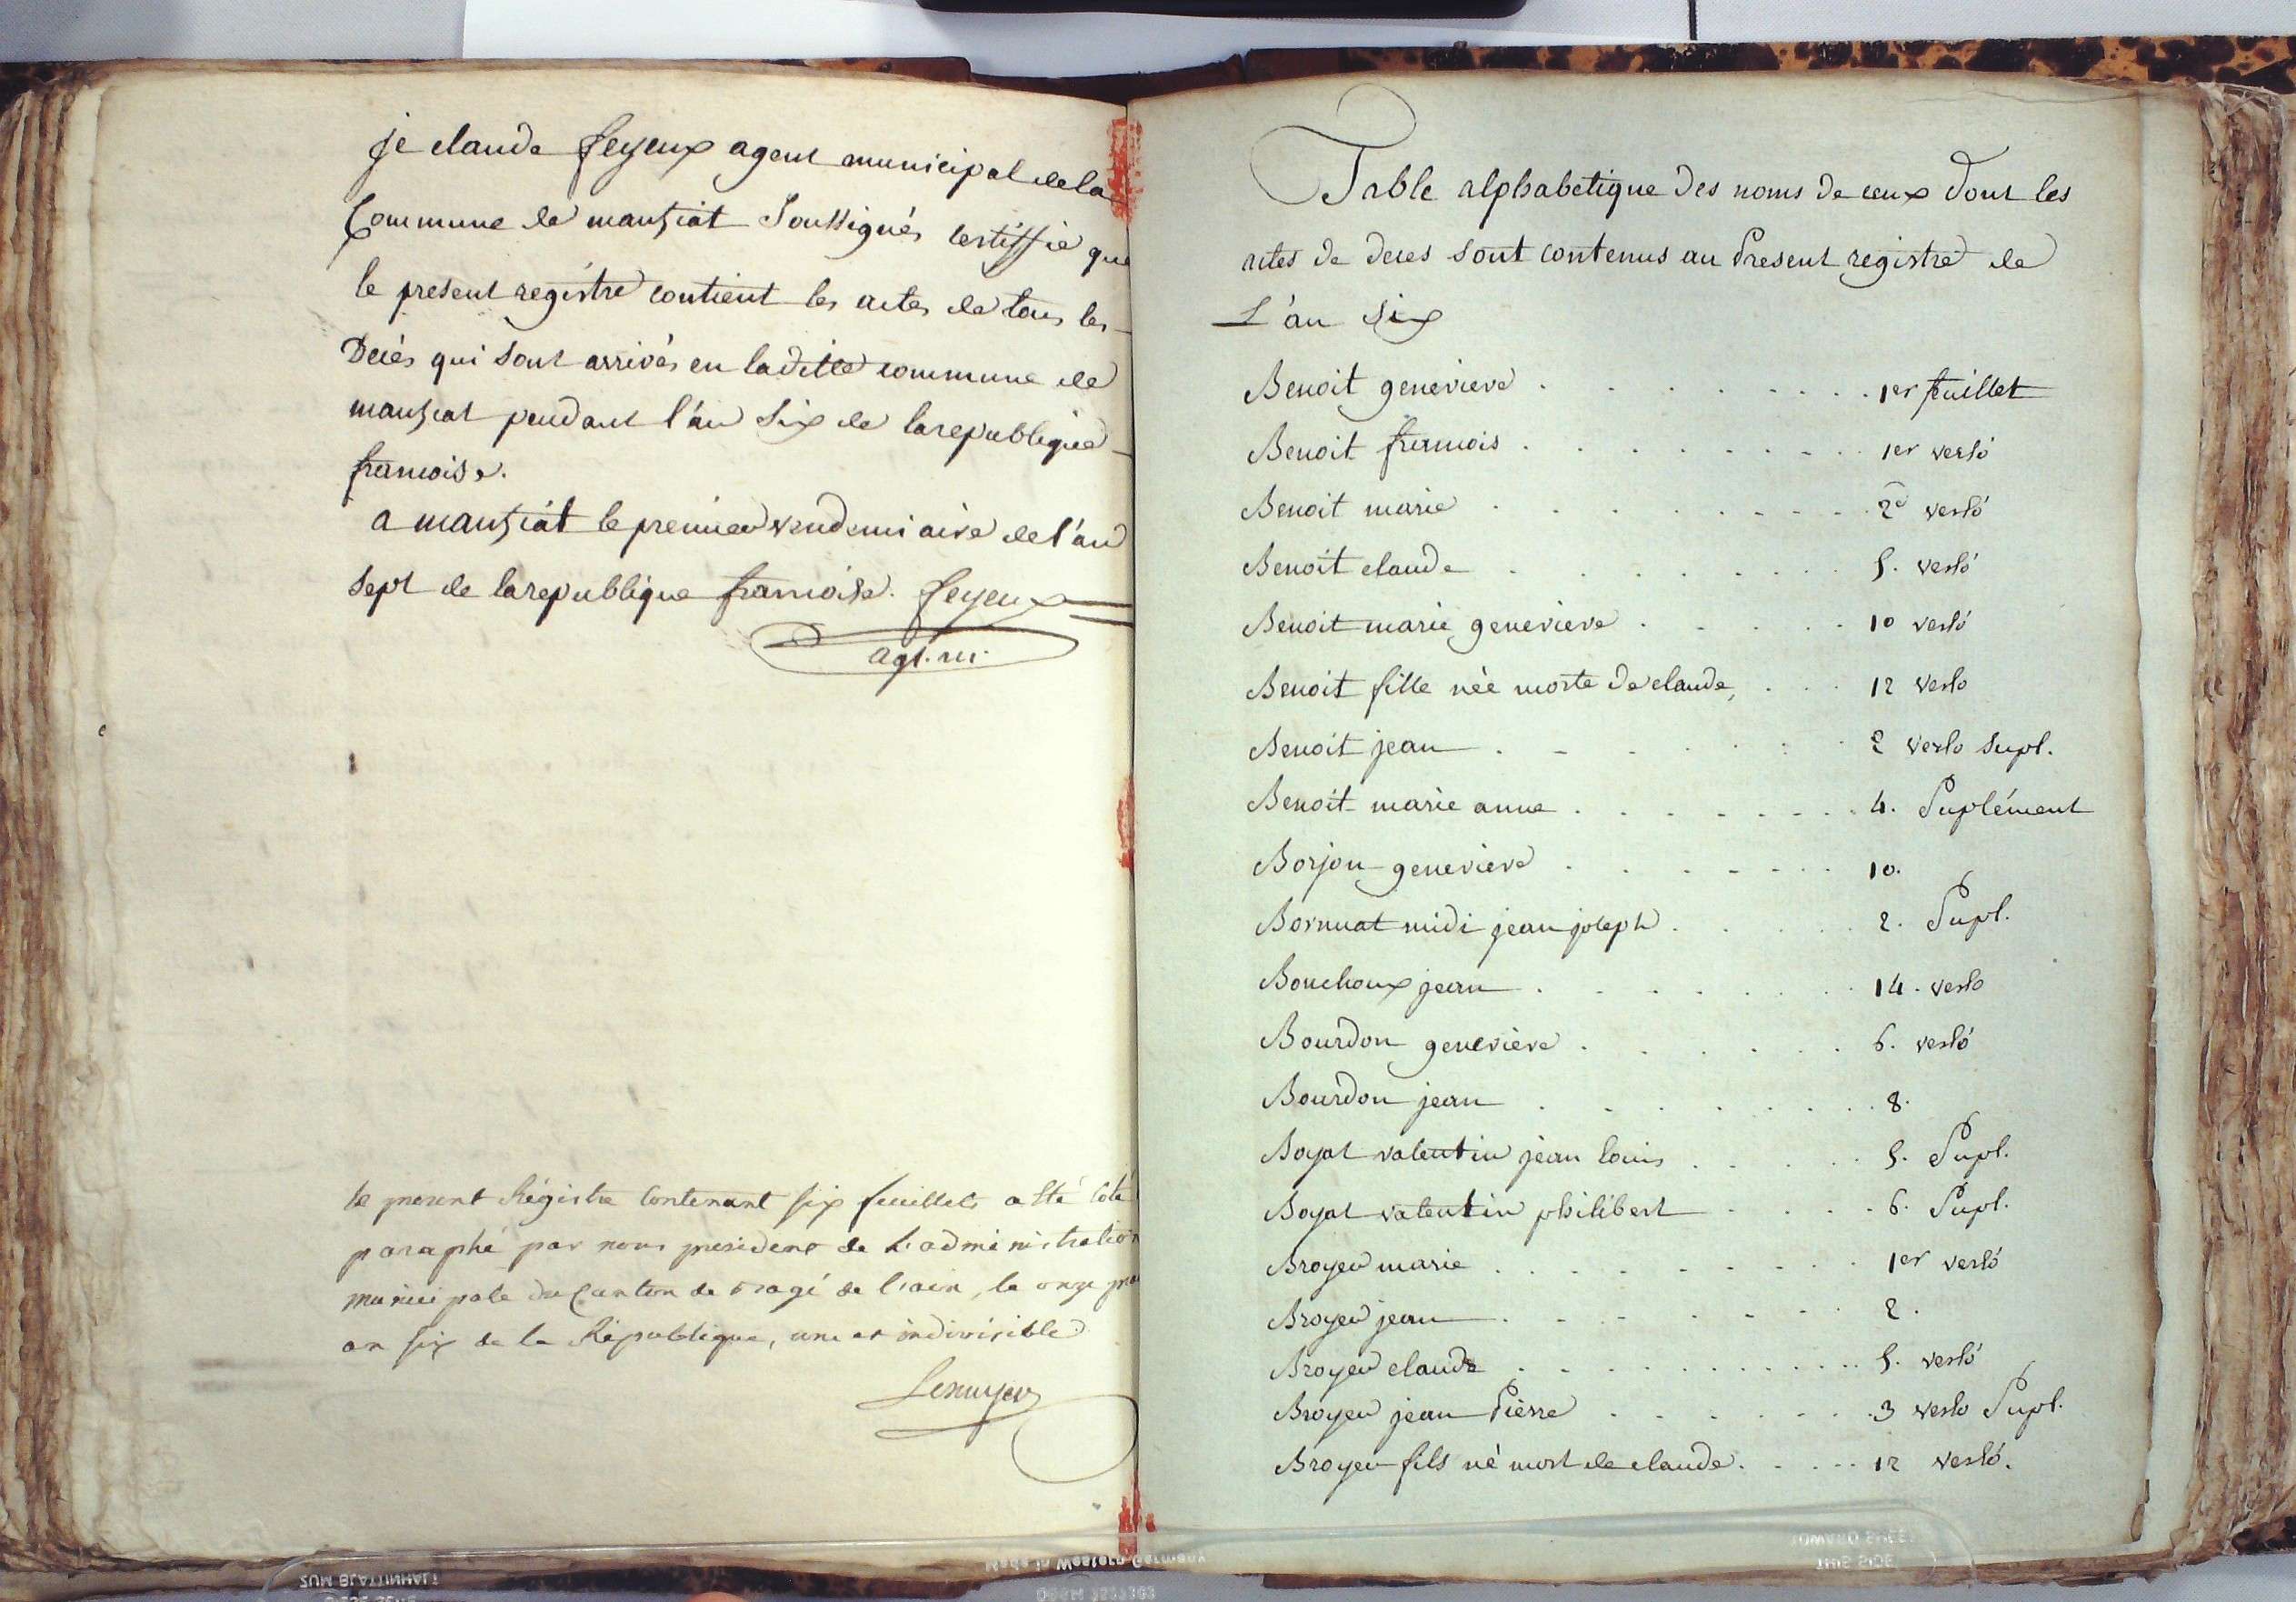 je claude feyeux agent municipal de la
Commune de mantziat Soussignés certiffie que
le present registre contient les actes de tous les
Decés qui sont arrivés en laditte commune de
mantziat pendant l'an Six de la republique
francoise.
a mantziat le premier vendemiaire de l'an
Sept de la republique francoise. feyeux
agt. m.
le present Régistre Contenant six feuillets a été coté
paraphé par nous president de L'administration
municipale du Canton de Bagé de l'ain, le onze
an six de la République, une et indivisible
Table alphabetique des noms de ceux dont les
actes de deces sont contenus au Present registre de
L'an Six
Benoit genevieve . . . . . . . . 1er feuillet
Benoit francois . . . . . . . . 1er versó
Benoit marie . . . . . . . . 2d versó
Benoit claude . . . . . . . . 5. versó
Benoit marie genevieve . . . . . 10 versó
Benoit fille née morte de claude, . . . 12 verso
Benoit jean . . . . . . . 2 verso supl.
Benoit marie anne . . . . . . . 4. Suplément
Borjon genevieve . . . . . . . 10.
Bornuat midi jean joseph . . . . . 2. Supl.
Bouchoux jean . . . . . . . 14. verso
Bourdon genevieve . . . . . . 6. versó
Bourdon jean . . . . . . . . 8.
Boyat valentin jean louis . . . . . 5. Supl.
Boyat valentin philibert . . . . 6. Supl.
Broyer marie . . . . . . . . . 1er versó
Broyer jean . . . . . . . . 2.
Broyer claude . . . . . . . . . . 5. versó
Broyer jean Pierre . . . . . . . 3 verso Supl.
Broyer fils né mort de claude. . . . . 12 versó.
Made in Western Germany
ZUM BLATTINHALT
THIS SIDE